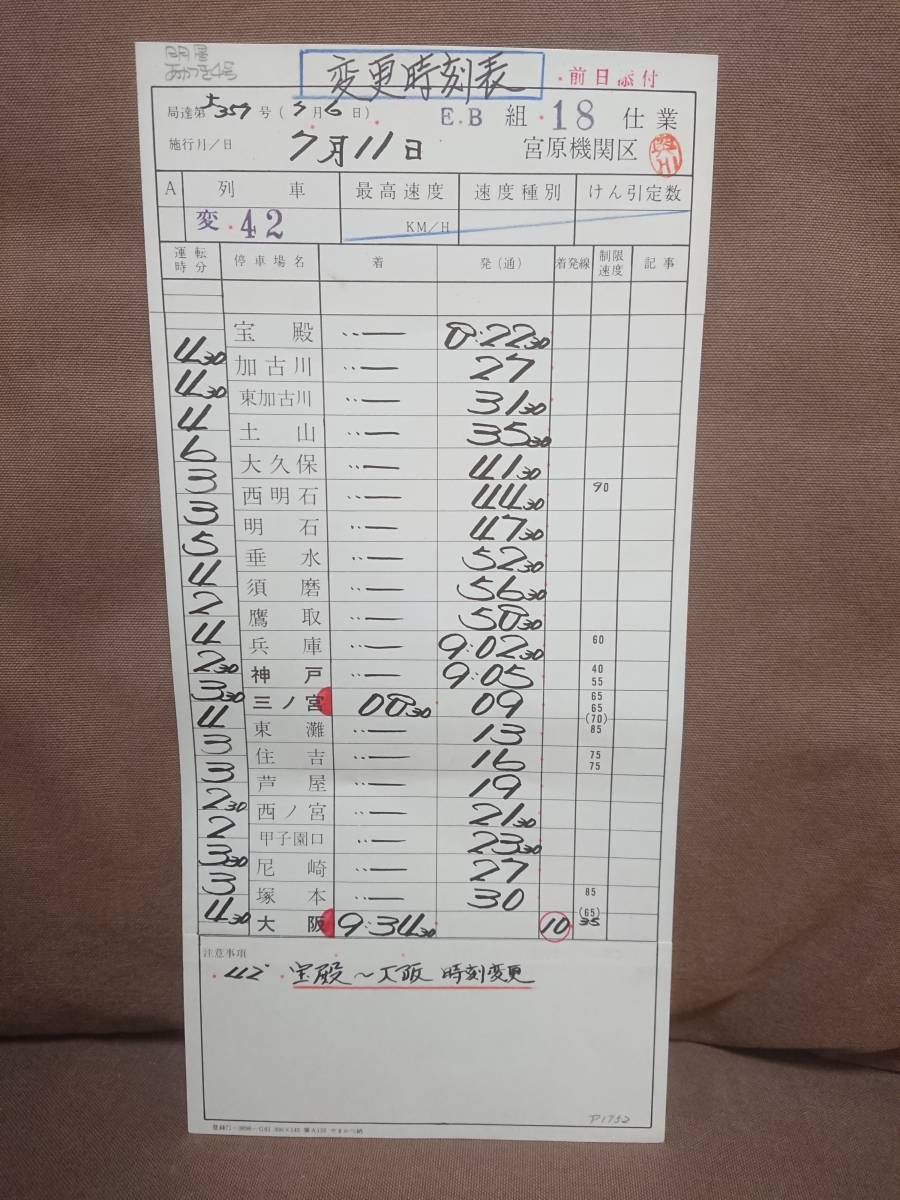 あかつき4号
変更時刻表
前日添付
局達第 357 号 (7月6日) E.B 組 18 仕業
施行月/日 7月11日 宮原機関区
A 列車 最高速度 速度種別 けん引定数
変.42 KM/H
運転時分 停車場名 着 発(通) 着発線 制限速度 記事
宝殿 ‥― 8:22 30
4 30
加古川 ‥― 27
4 30
東加古川 ‥― 31 30
4
土山 ‥― 35 30
6
大久保 ‥― 41 30
3
西明石 ‥― 44 30 90
3
明石 ‥― 47 30
5
垂水 ‥― 52 30
4
須磨 ‥― 56 30
2
鷹取 ‥― 58 30
4
兵庫 ‥― 9:02 30 60
2 30
神戸 ‥― 9:05 40 55
3 30
三ノ宮 08 30 09 65 65 (70)
4
東灘 ‥― 13 85
3
住吉 ‥― 16 75 75
3
芦屋 ‥― 19
2 30
西ノ宮 ‥― 21 30
2
甲子園口 ‥― 23 30
3 30
尼崎 ‥― 27
3
塚本 ‥― 30 85
4 30
大阪 9:34 30 10 (65) 35
注意事項
42 宝殿〜大阪 時刻変更
P1752